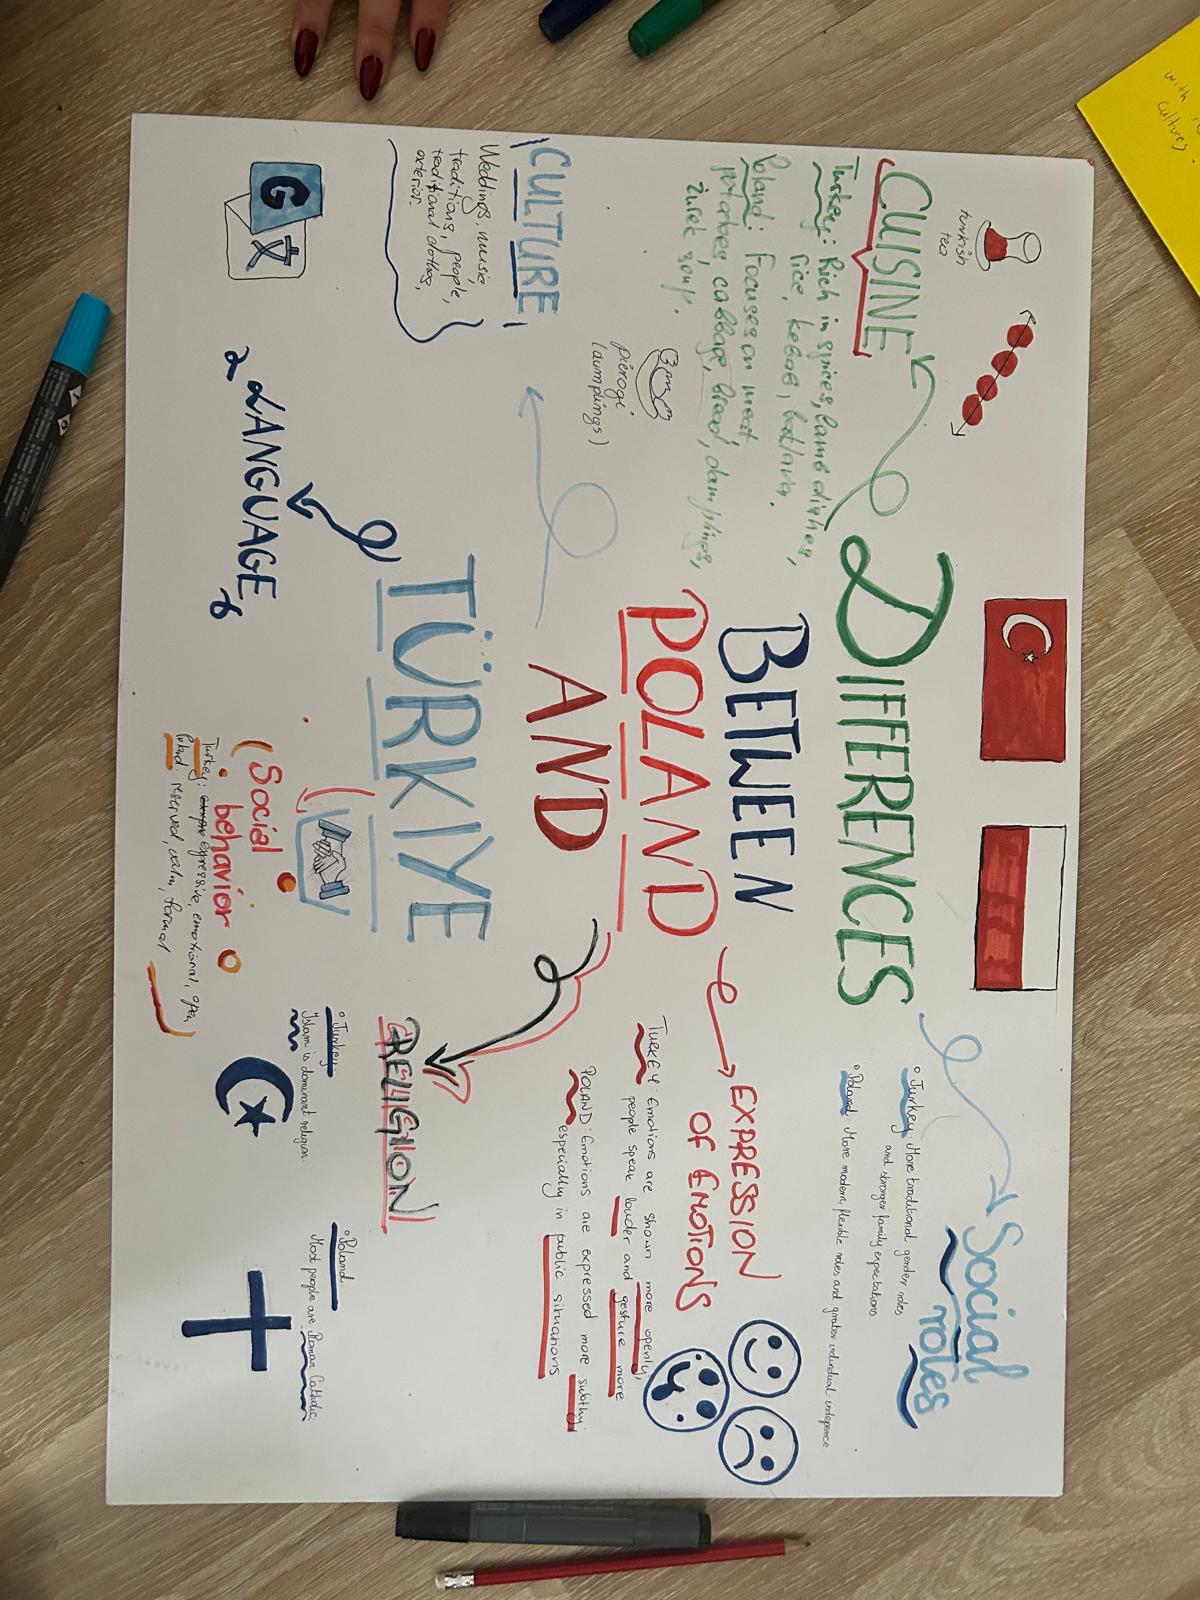 DIFFERENCES
BETWEEN
POLAND
AND
TÜRKIYE
turkish
tea
CUISINE
Turkey: Rich in spices, lamb dishes,
rice, kebab, baklava,
Poland: Focuses on meat
potatoes, cabbage, bread, dumplings,
żurek soup.
pierogi
(dumplings)
CULTURE
Weddings, music,
traditions, people,
traditional clothes,
exterior.
G 文
LANGUAGE
Social
behavior
Turkey: expressive, emotional, open
Poland: reserved, calm, formal
RELIGION
Turkey:
Islam is dominant religion.
Poland
Most people are Roman Catholic
EXPRESSION
OF EMOTIONS
TURKEY: Emotions are shown more openly,
people speak louder and gesture more
POLAND: Emotions are expressed more subtly,
especially in public situations
Social
roles
Turkey: More traditional gender roles
and stronger family expectations
Poland: More modern, flexible roles and greater individual
with
cultures.